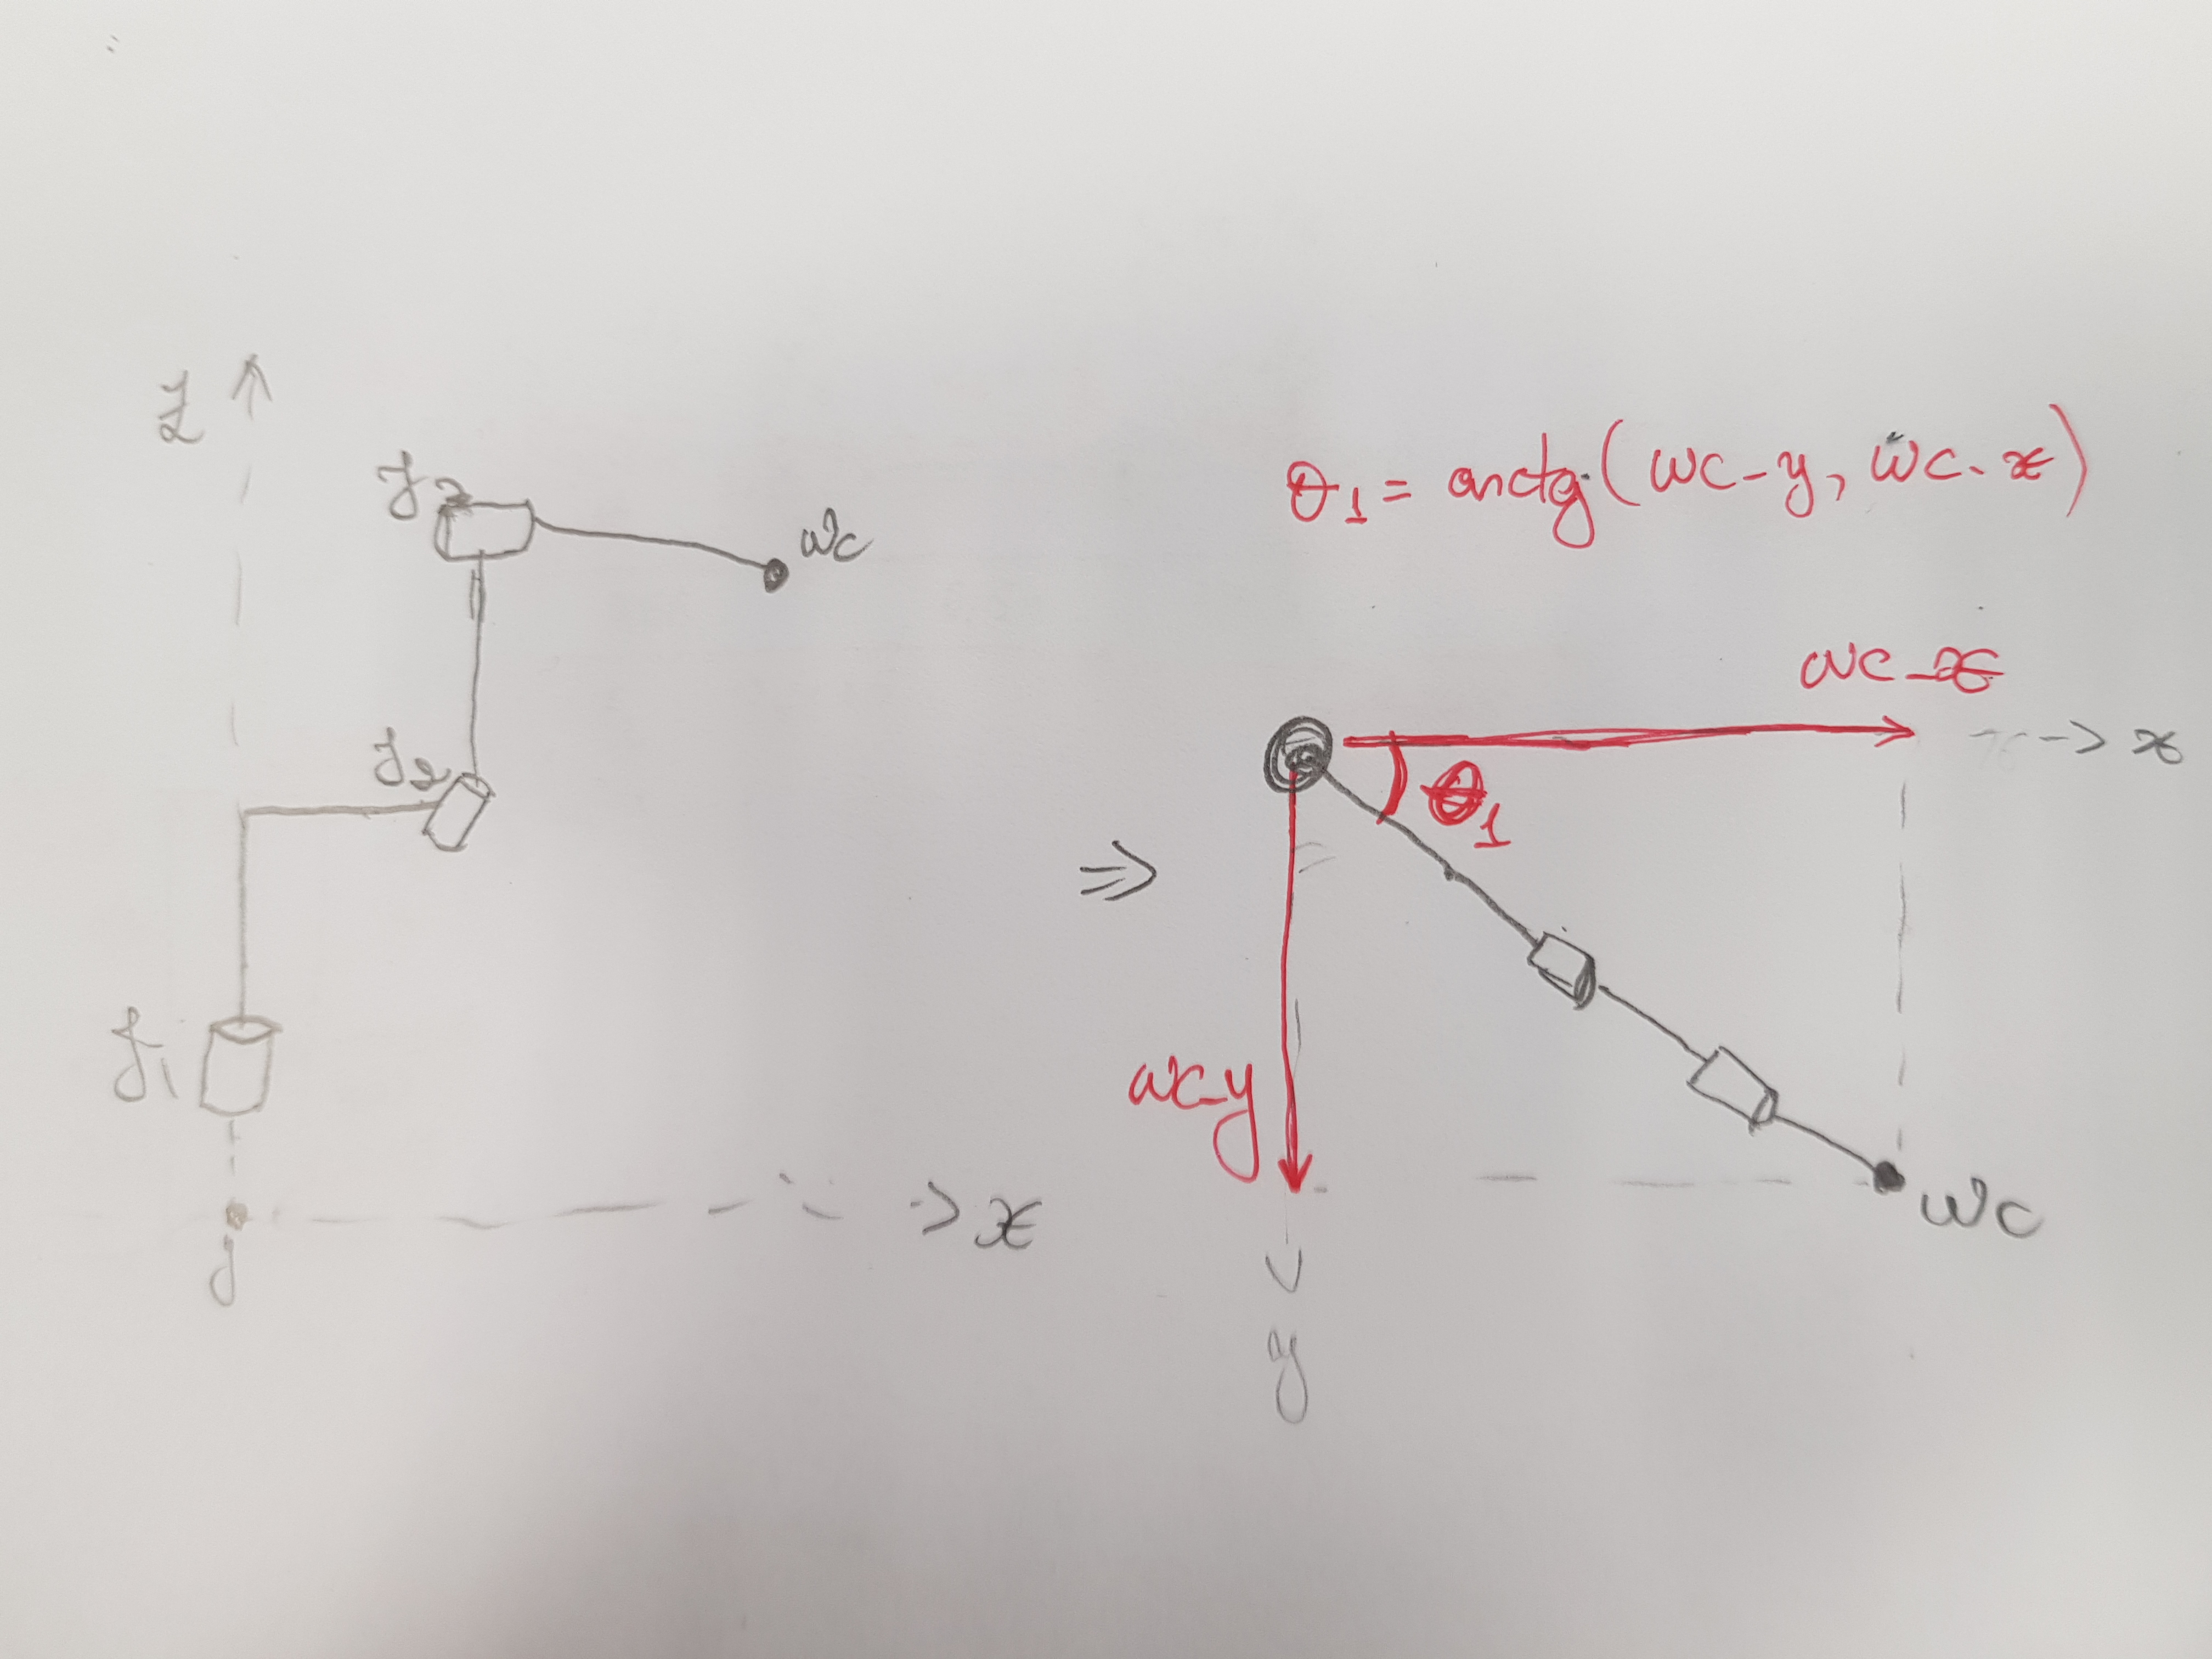 z
J3
wc
J2
J1
x
y
⇒
θ1 = arctg(wc-y, wc-x)
wc-x
x
θ1
wc-y
wc
y